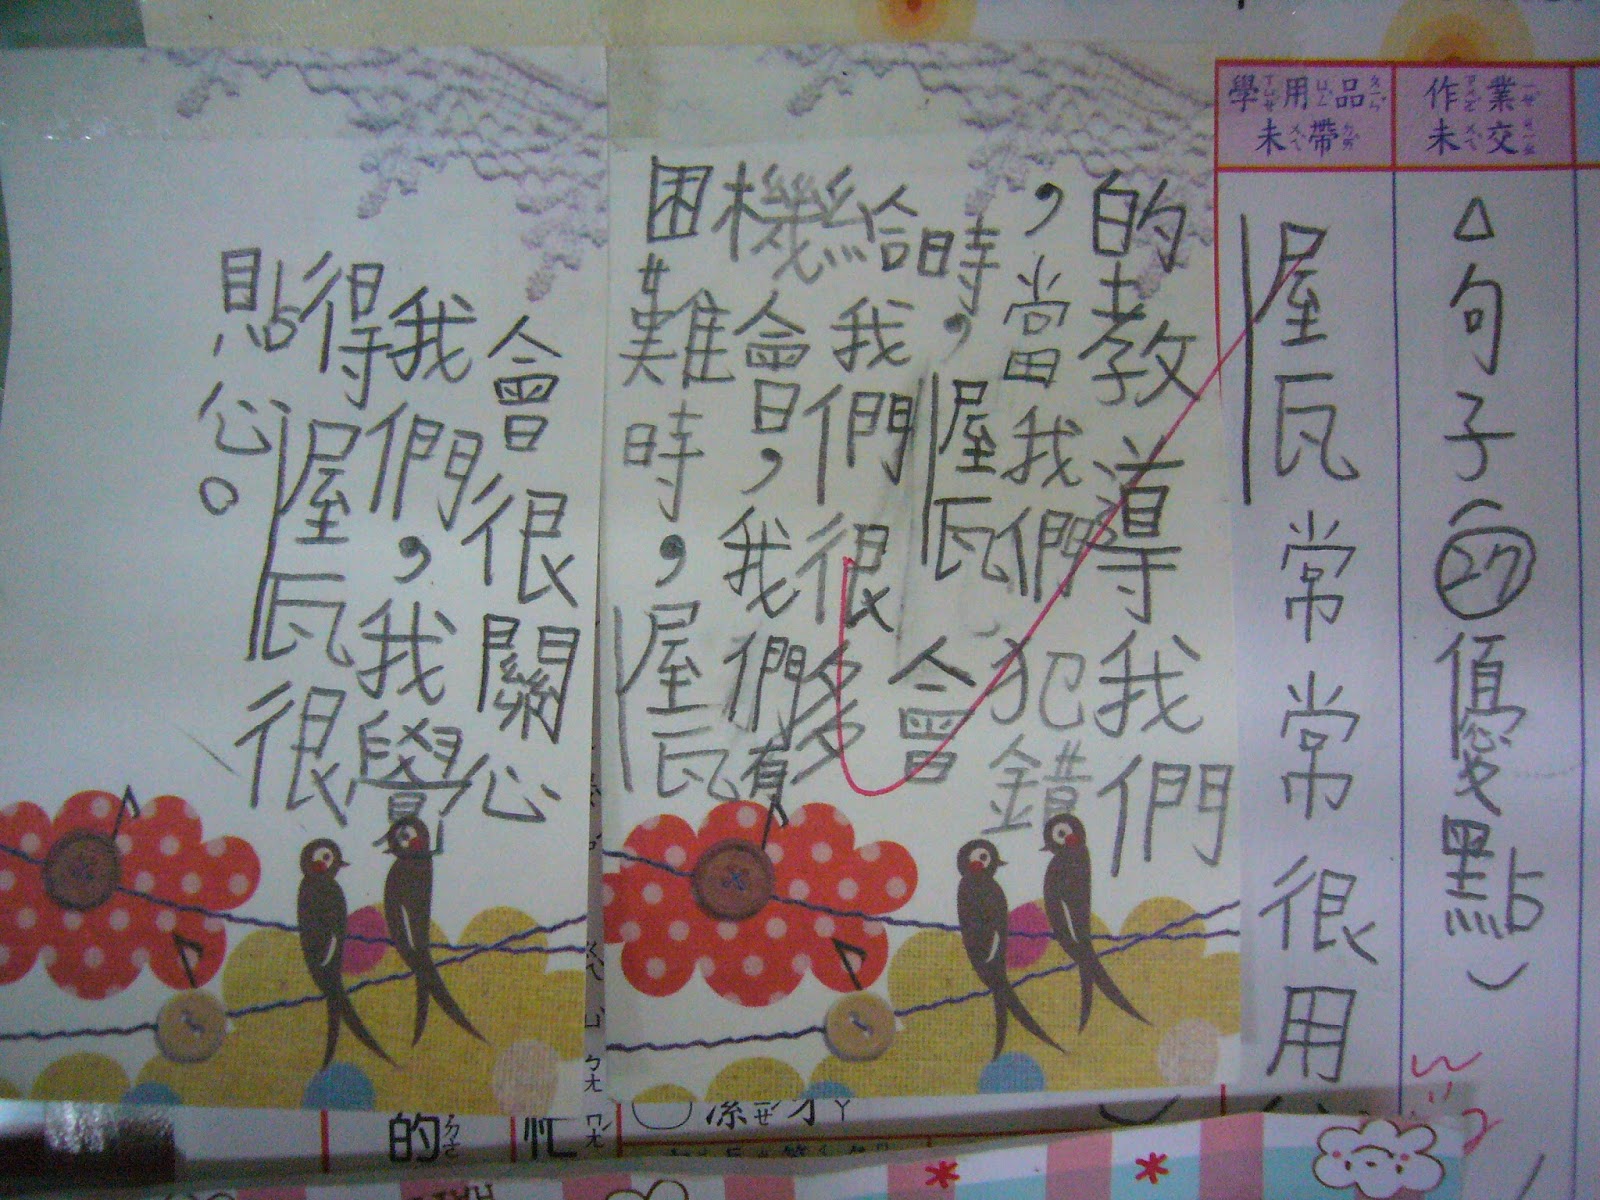 作業未交
學用品未帶
△句子(27優點)
屋瓦常常很用心
的教導我們
，當我們犯錯
時，屋瓦會
給我們很多
機會，我們有
困難時，屋瓦
會很關心
我們，我覺
得屋瓦很
貼心。
的
忙
潔